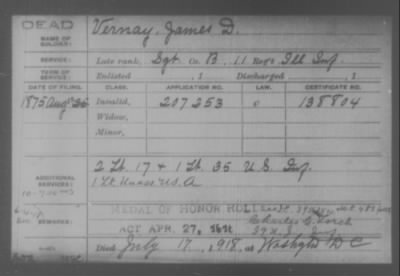 DEAD
NAME OF SOLDIER: Vernay, James D.
SERVICE: Late rank, Sgt. Co. B, 11 Reg't Ill Inf.
TERM OF SERVICE: Enlisted , 1 Discharged , 1
DATE OF FILING. CLASS. APPLICATION NO. LAW. CERTIFICATE NO.
1875 Aug 26 Invalid, 207253 c 138804
Widow,
Minor,
ADDITIONAL SERVICES: 2 Lt. 17 & 1 Lt. 35 U.S. Inf.
1 Lt U.S.A
MEDAL OF HONOR ROLL
REMARKS: ACT APR. 27, 1916
Died July 17, 1918, at Washgtn D C